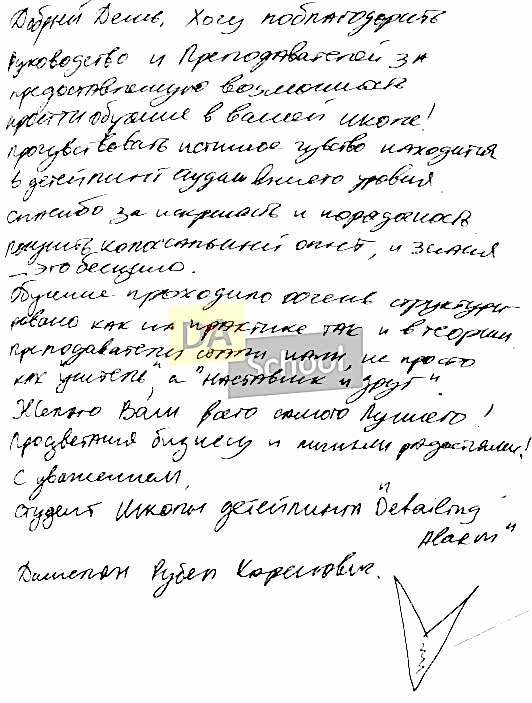 Добрый День, Хочу поблагодарить
руководство и Преподавателей за
предоставленную возможность
пройти обучение в вашей школе!
прочувствовать истинное чувство находится
в детейлинг студии вашего уровня
спасибо за искренность и порядочность
получить колоссальный опыт, и знания
– это бесценно.
Обучение проходило очень структури-
ровано как на практике так и в теории
преподаватели стали нам, не просто
как "учитель", а "наставник и друг".
Желаю Вам всего самого Лучшего!
Процветания бизнесу и личными радостями!
С уважением,
студент Школы детейлинга "Detailing
Alarm"
Рубен Каренович.
DA
School